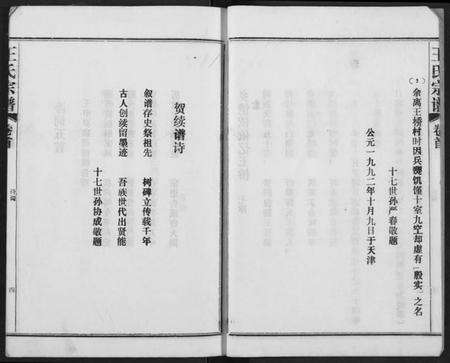 王氏宗谱
卷首
(1)余离王楼村时因兵燹饥馑十室九空却虚有“殷实”之名
十七世孙严春敬题
公元一九九二年十月九日于天津
贺续谱诗
叙谱存史祭祖先　树碑立传载千年
古人创续留墨迹　吾族世代出贤能
十七世孙协成敬题
王氏宗谱
卷首
四